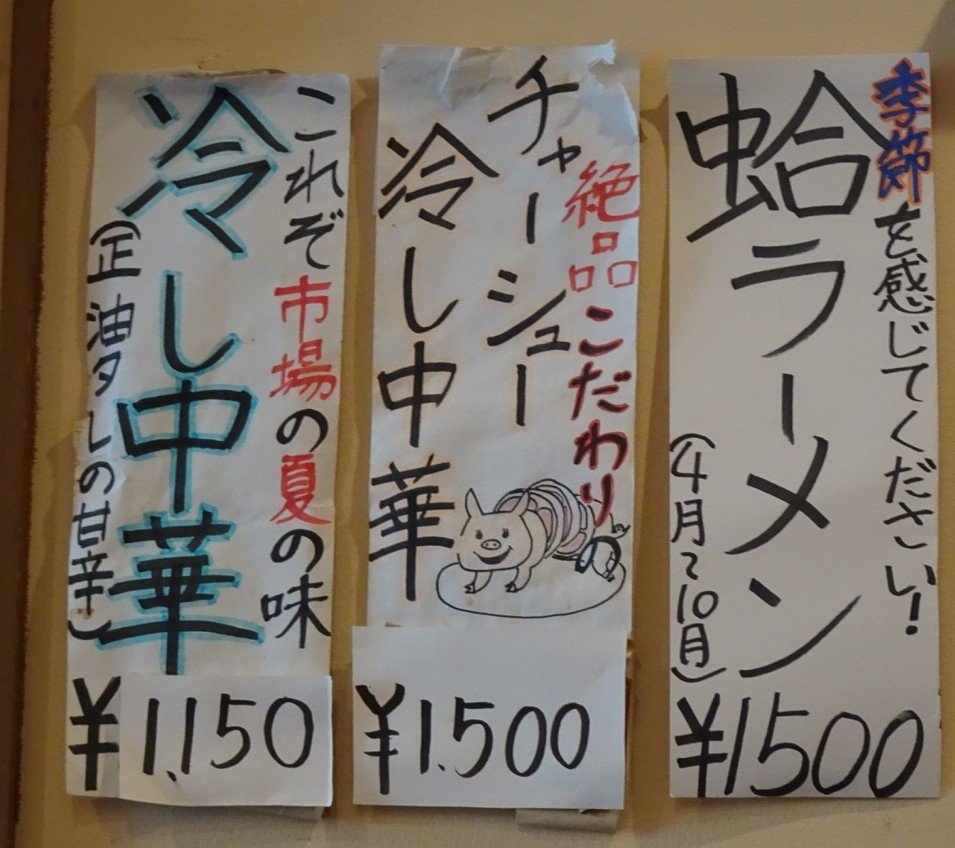 季節を感じてください!
蛤ラーメン
(4月~10月)
¥1500
絶品こだわりの
チャーシュー
冷し中華
¥1.500
これぞ市場の夏の味
冷し中華
(正油タレの甘辛)
¥1,150